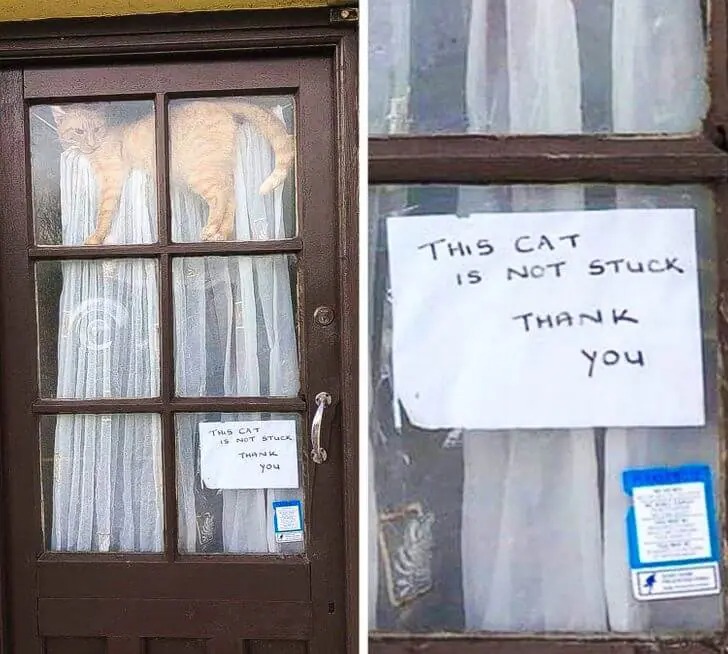 THIS CAT
IS NOT STUCK
THANK
YOU
THIS CAT
IS NOT STUCK
THANK
YOU